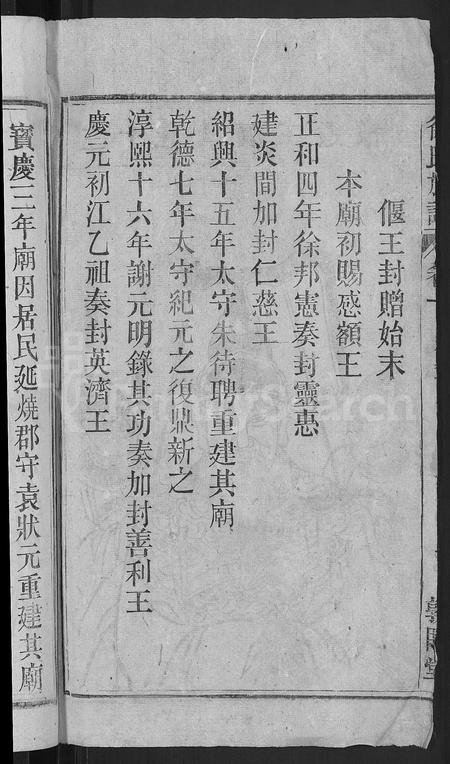 偃王封贈始末
本廟初賜感額王
正和四年徐邦憲奏封靈惠
建炎間加封仁慈王
紹興十五年太守朱待聘重建其廟
乾德七年太守紀元之復鼎新之
淳熙十六年謝元明錄其功奏加封善利王
慶元初江乙祖奏封英濟王
寳慶三年廟因居民延燒郡守袁狀元重建其廟
FamilySearch